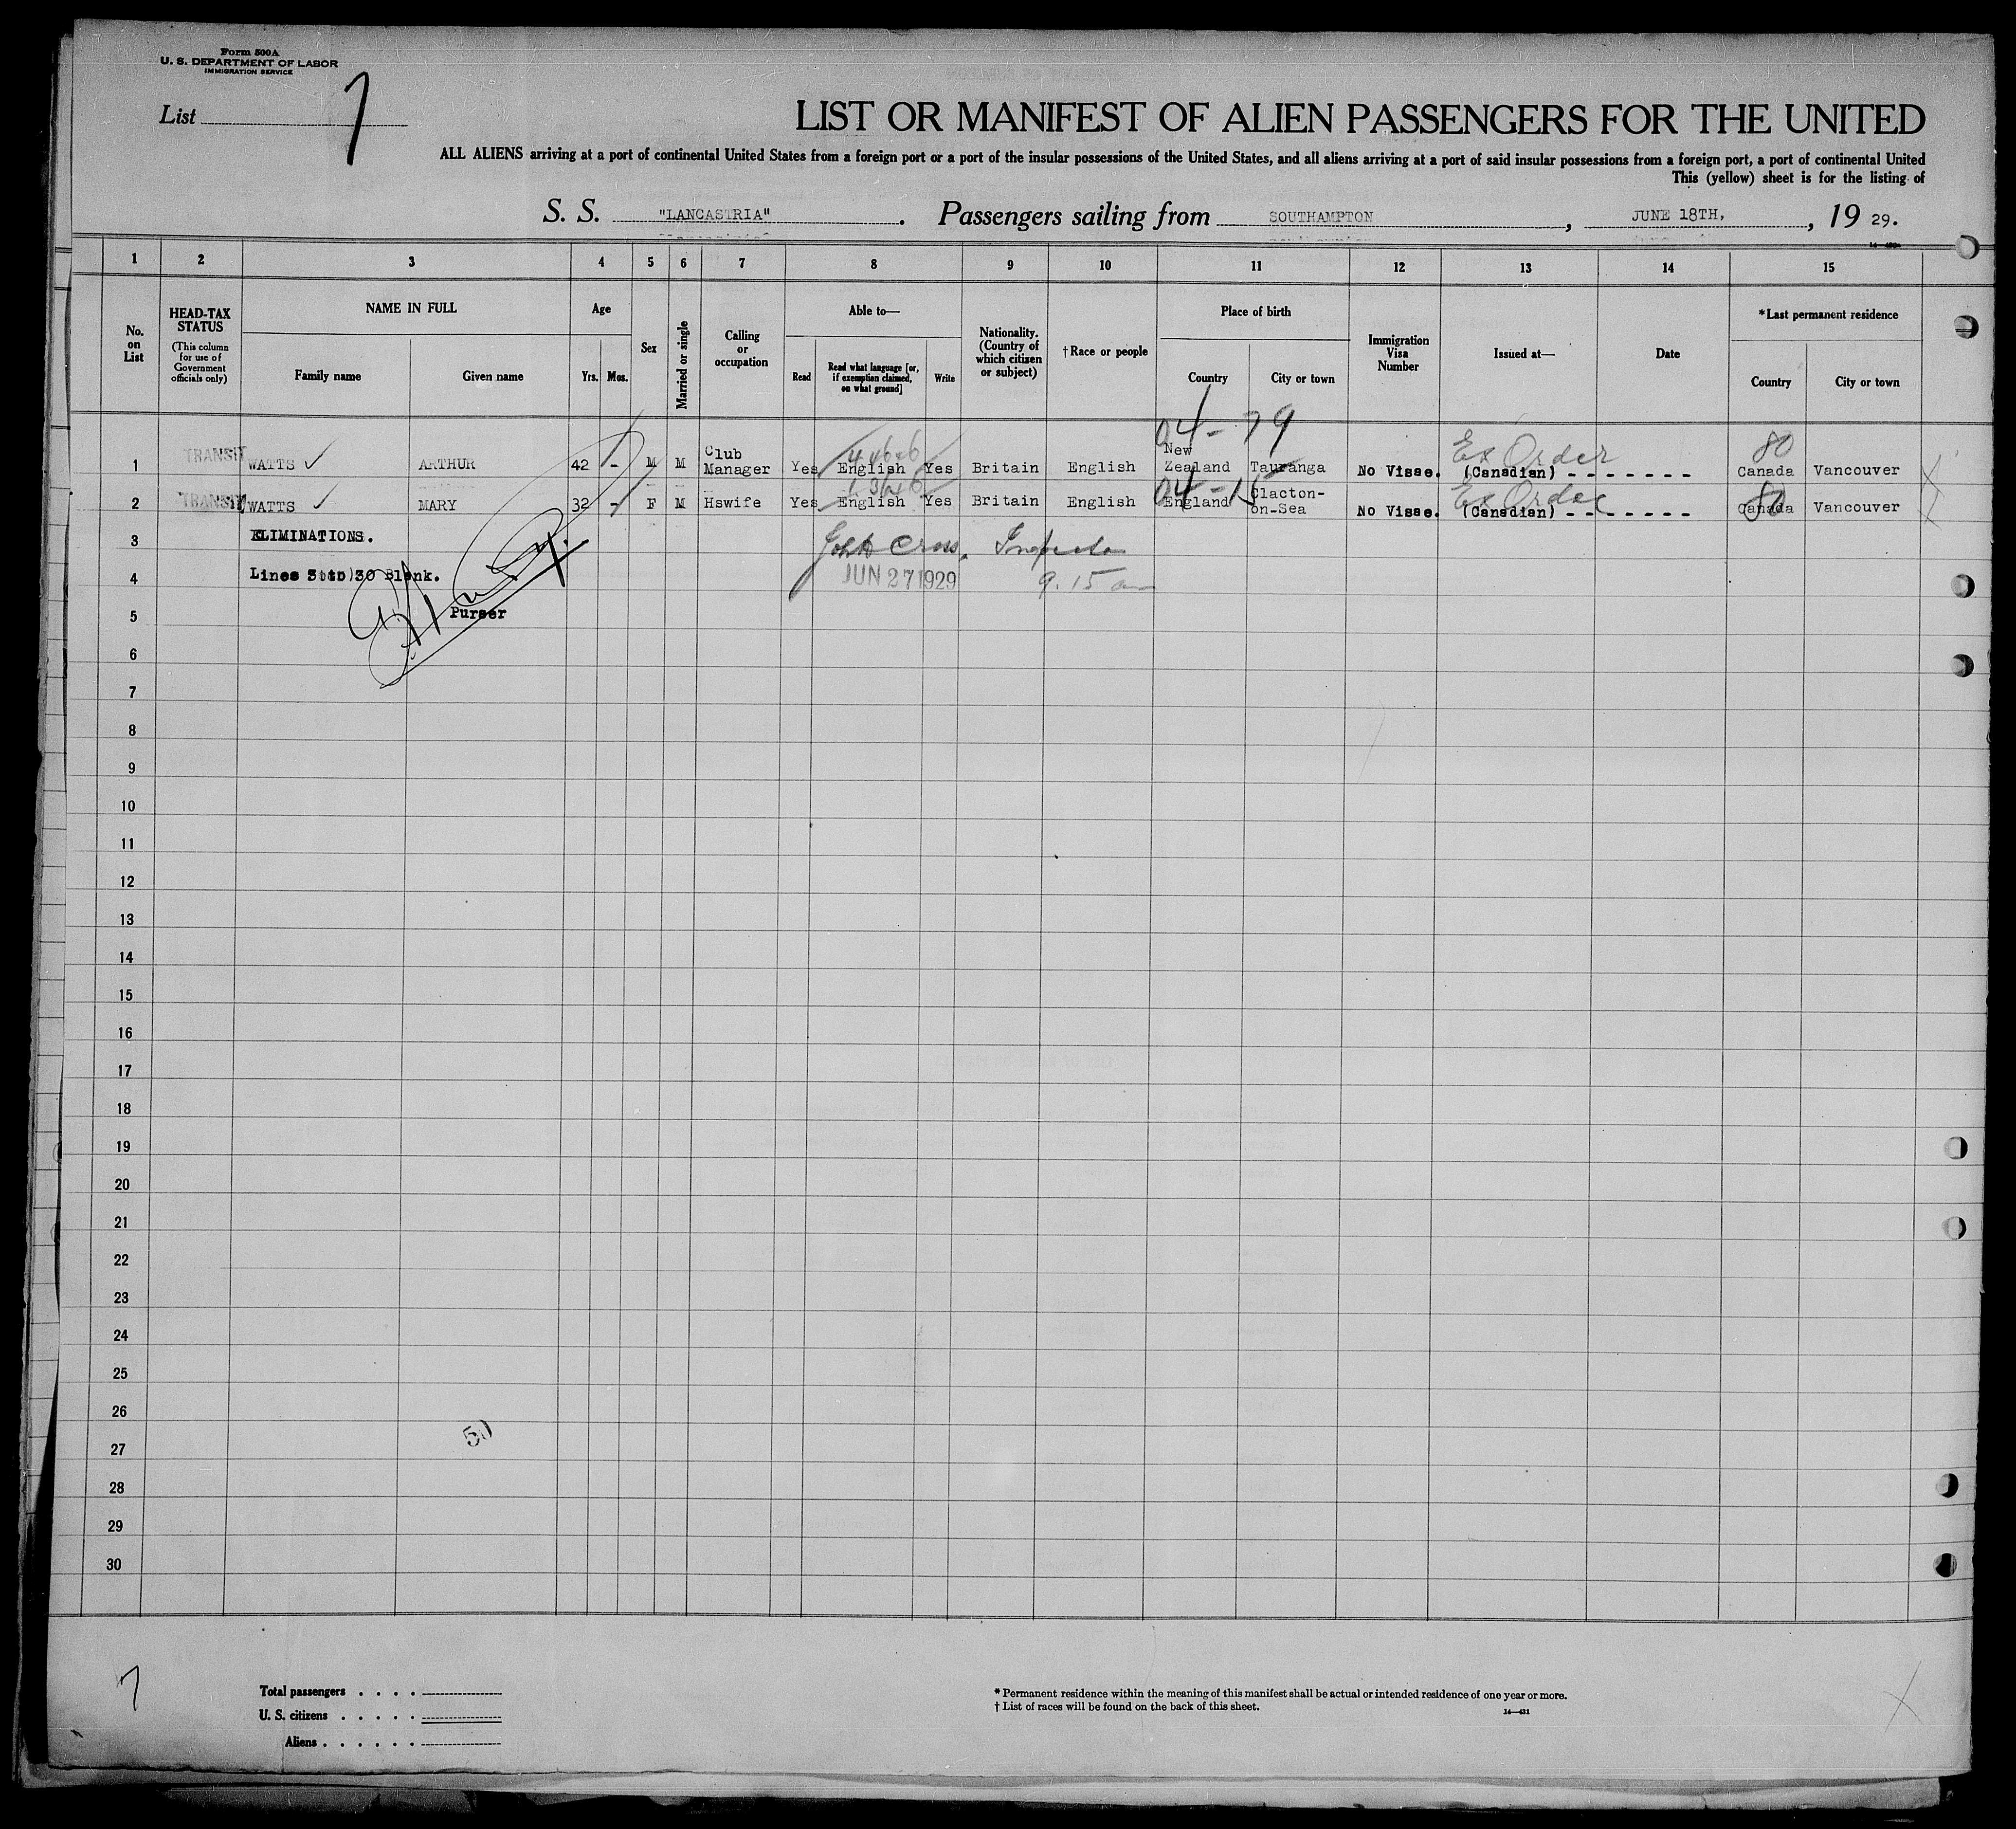 Form 500A
U. S. DEPARTMENT OF LABOR
IMMIGRATION SERVICE
List 7
LIST OR MANIFEST OF ALIEN PASSENGERS FOR THE UNITED
ALL ALIENS arriving at a port of continental United States from a foreign port or a port of the insular possessions of the United States, and all aliens arriving at a port of said insular possessions from a foreign port, a port of continental United
This (yellow) sheet is for the listing of
S. S. "LANCASTRIA". Passengers sailing from SOUTHAMPTON, JUNE 18TH, , 19 29.
1 2 3 4 5 6 7 8 9 10 11 12 13 14 15
No. on List
HEAD-TAX STATUS
(This column for use of Government officials only)
NAME IN FULL
Family name
Given name
Age
Yrs. Mos.
Sex
Married or single
Calling or occupation
Able to—
Read
Read what language [or, if exemption claimed, on what ground]
Write
Nationality. (Country of which citizen or subject)
†Race or people
Place of birth
Country
City or town
Immigration Visa Number
Issued at—
Date
*Last permanent residence
Country
City or town
04 - 79
1 TRANSIT WATTS ✓ ARTHUR 42 - M M Club Manager Yes English Yes Britain English New Zealand Tauranga No Visae. Ex Order (Canadian) - - - - - - - - 80 Canada Vancouver
04 - 15
2 TRANSIT WATTS ✓ MARY 32 - F M Hswife Yes English Yes Britain English England Clacton-on-Sea No Visae. Ex Order (Canadian) - - - - - - - - 80 Canada Vancouver
3 ELIMINATIONS. John Cross, Inspector
4 Lines 3 to 30 Blank. JUN 27 1929 9.15 am
5 Purser
6
7
8
9
10
11
12
13
14
15
16
17
18
19
20
21
22
23
24
25
26
50
27
28
29
30
7
Total passengers . . . .
U. S. citizens . . . . .
Aliens . . . . . .
* Permanent residence within the meaning of this manifest shall be actual or intended residence of one year or more.
† List of races will be found on the back of this sheet.
14—431